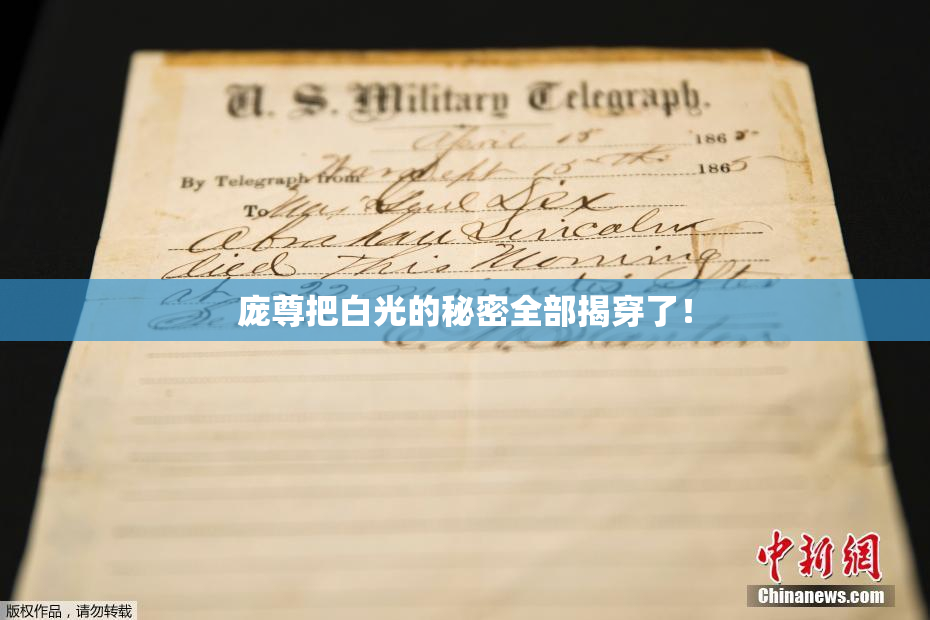 U. S. Military Telegraph.
April 15 1865.
By Telegraph from War Dept 15th 1865
To Maj Genl Dix
Abraham Lincoln
died This Morning
at 22 minutes after
庞尊把白光的秘密全部揭穿了！
E. M. Stanton
中新網
Chinanews.com
版权作品，请勿转载